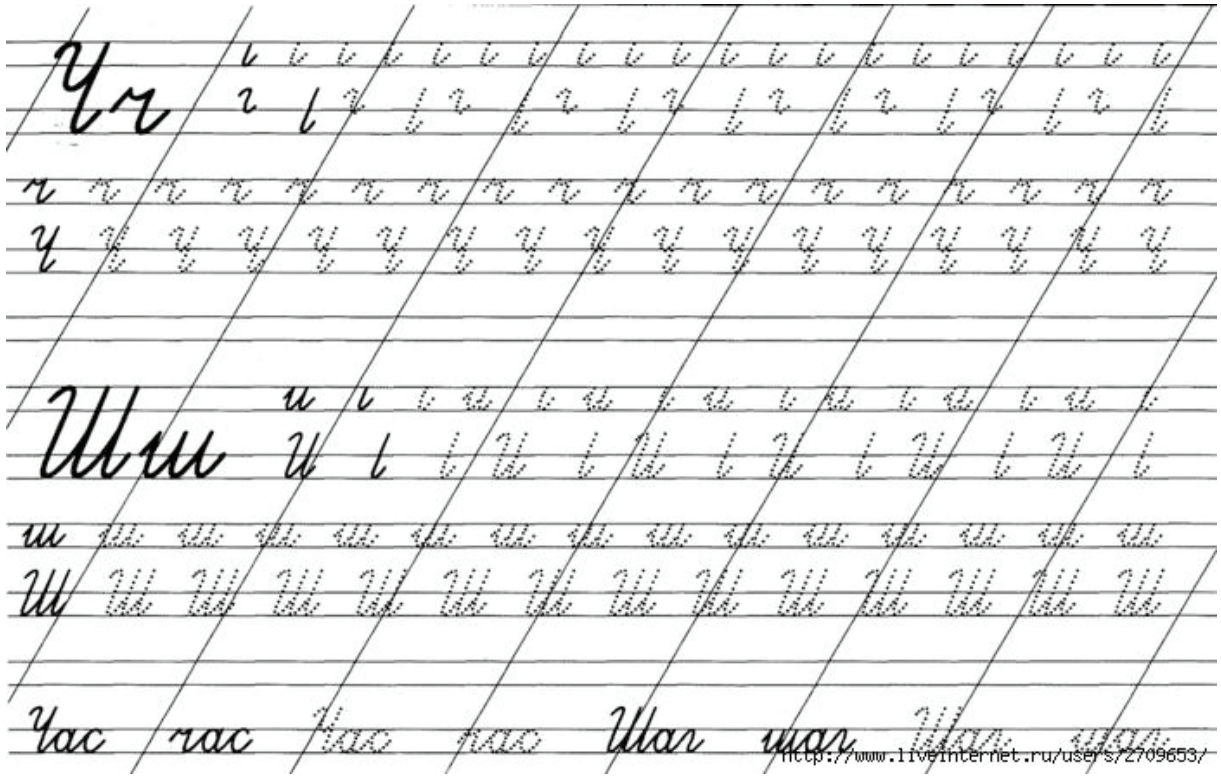 Чч
ч ч ч ч ч ч ч ч ч ч ч ч ч ч ч ч ч ч
Ч Ч Ч Ч Ч Ч Ч Ч Ч Ч Ч Ч Ч Ч Ч Ч Ч
Шш
ш ш ш ш ш ш ш ш ш ш ш ш ш ш ш
Ш Ш Ш Ш Ш Ш Ш Ш Ш Ш Ш Ш Ш Ш
Час час Час час Шаг шаг Шаг шаг
http://www.liveinternet.ru/users/2709653/